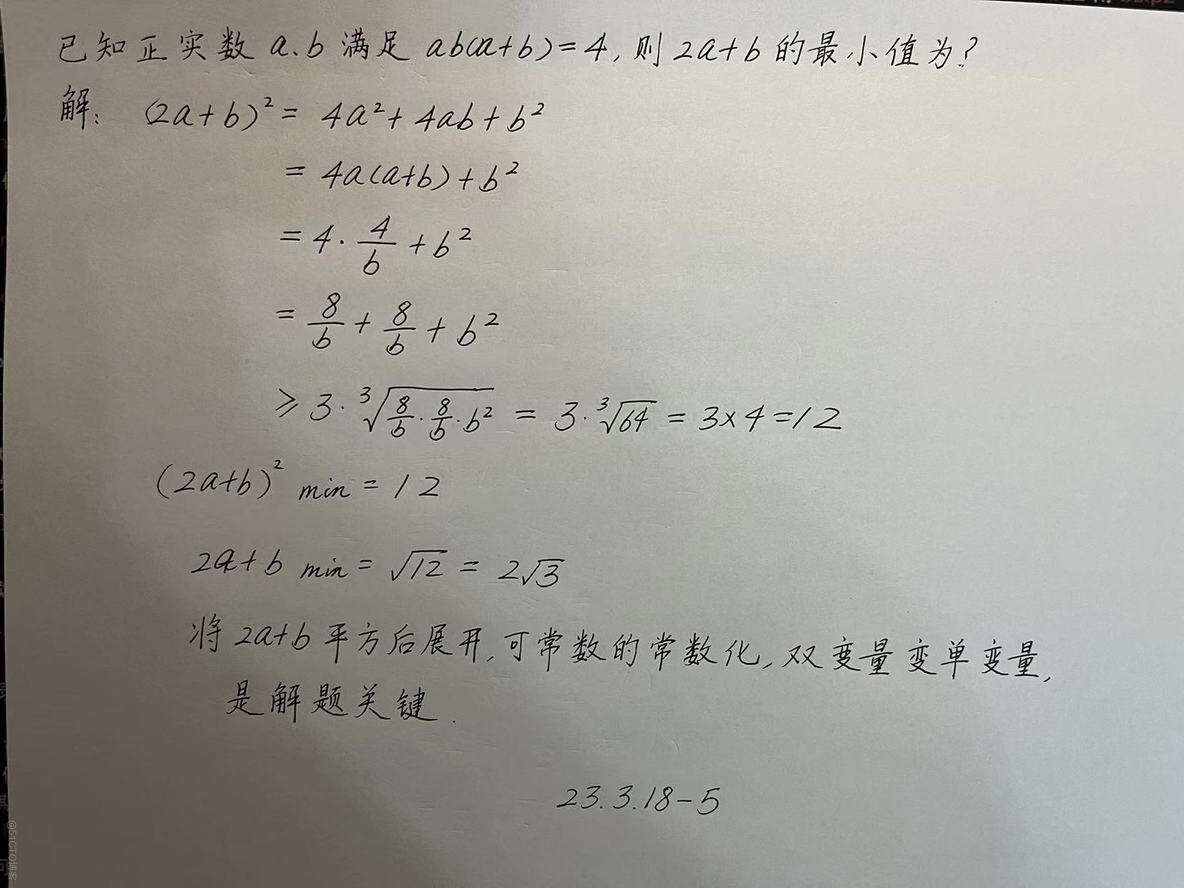 已知正实数 a.b 满足 ab(a+b)=4,则 2a+b 的最小值为?
解: (2a+b)²= 4a²+4ab+b²
= 4a(a+b)+b²
=4·4/b+b²
=8/b+8/b+b²
≥3·∛(8/b·8/b·b²) = 3·∛64 = 3×4=12
(2a+b)² min = 12
2a+b min = √12 = 2√3
将 2a+b 平方后展开,可常数的常数化,双变量变单变量,
是解题关键.
23.3.18-5
@51CTO博客